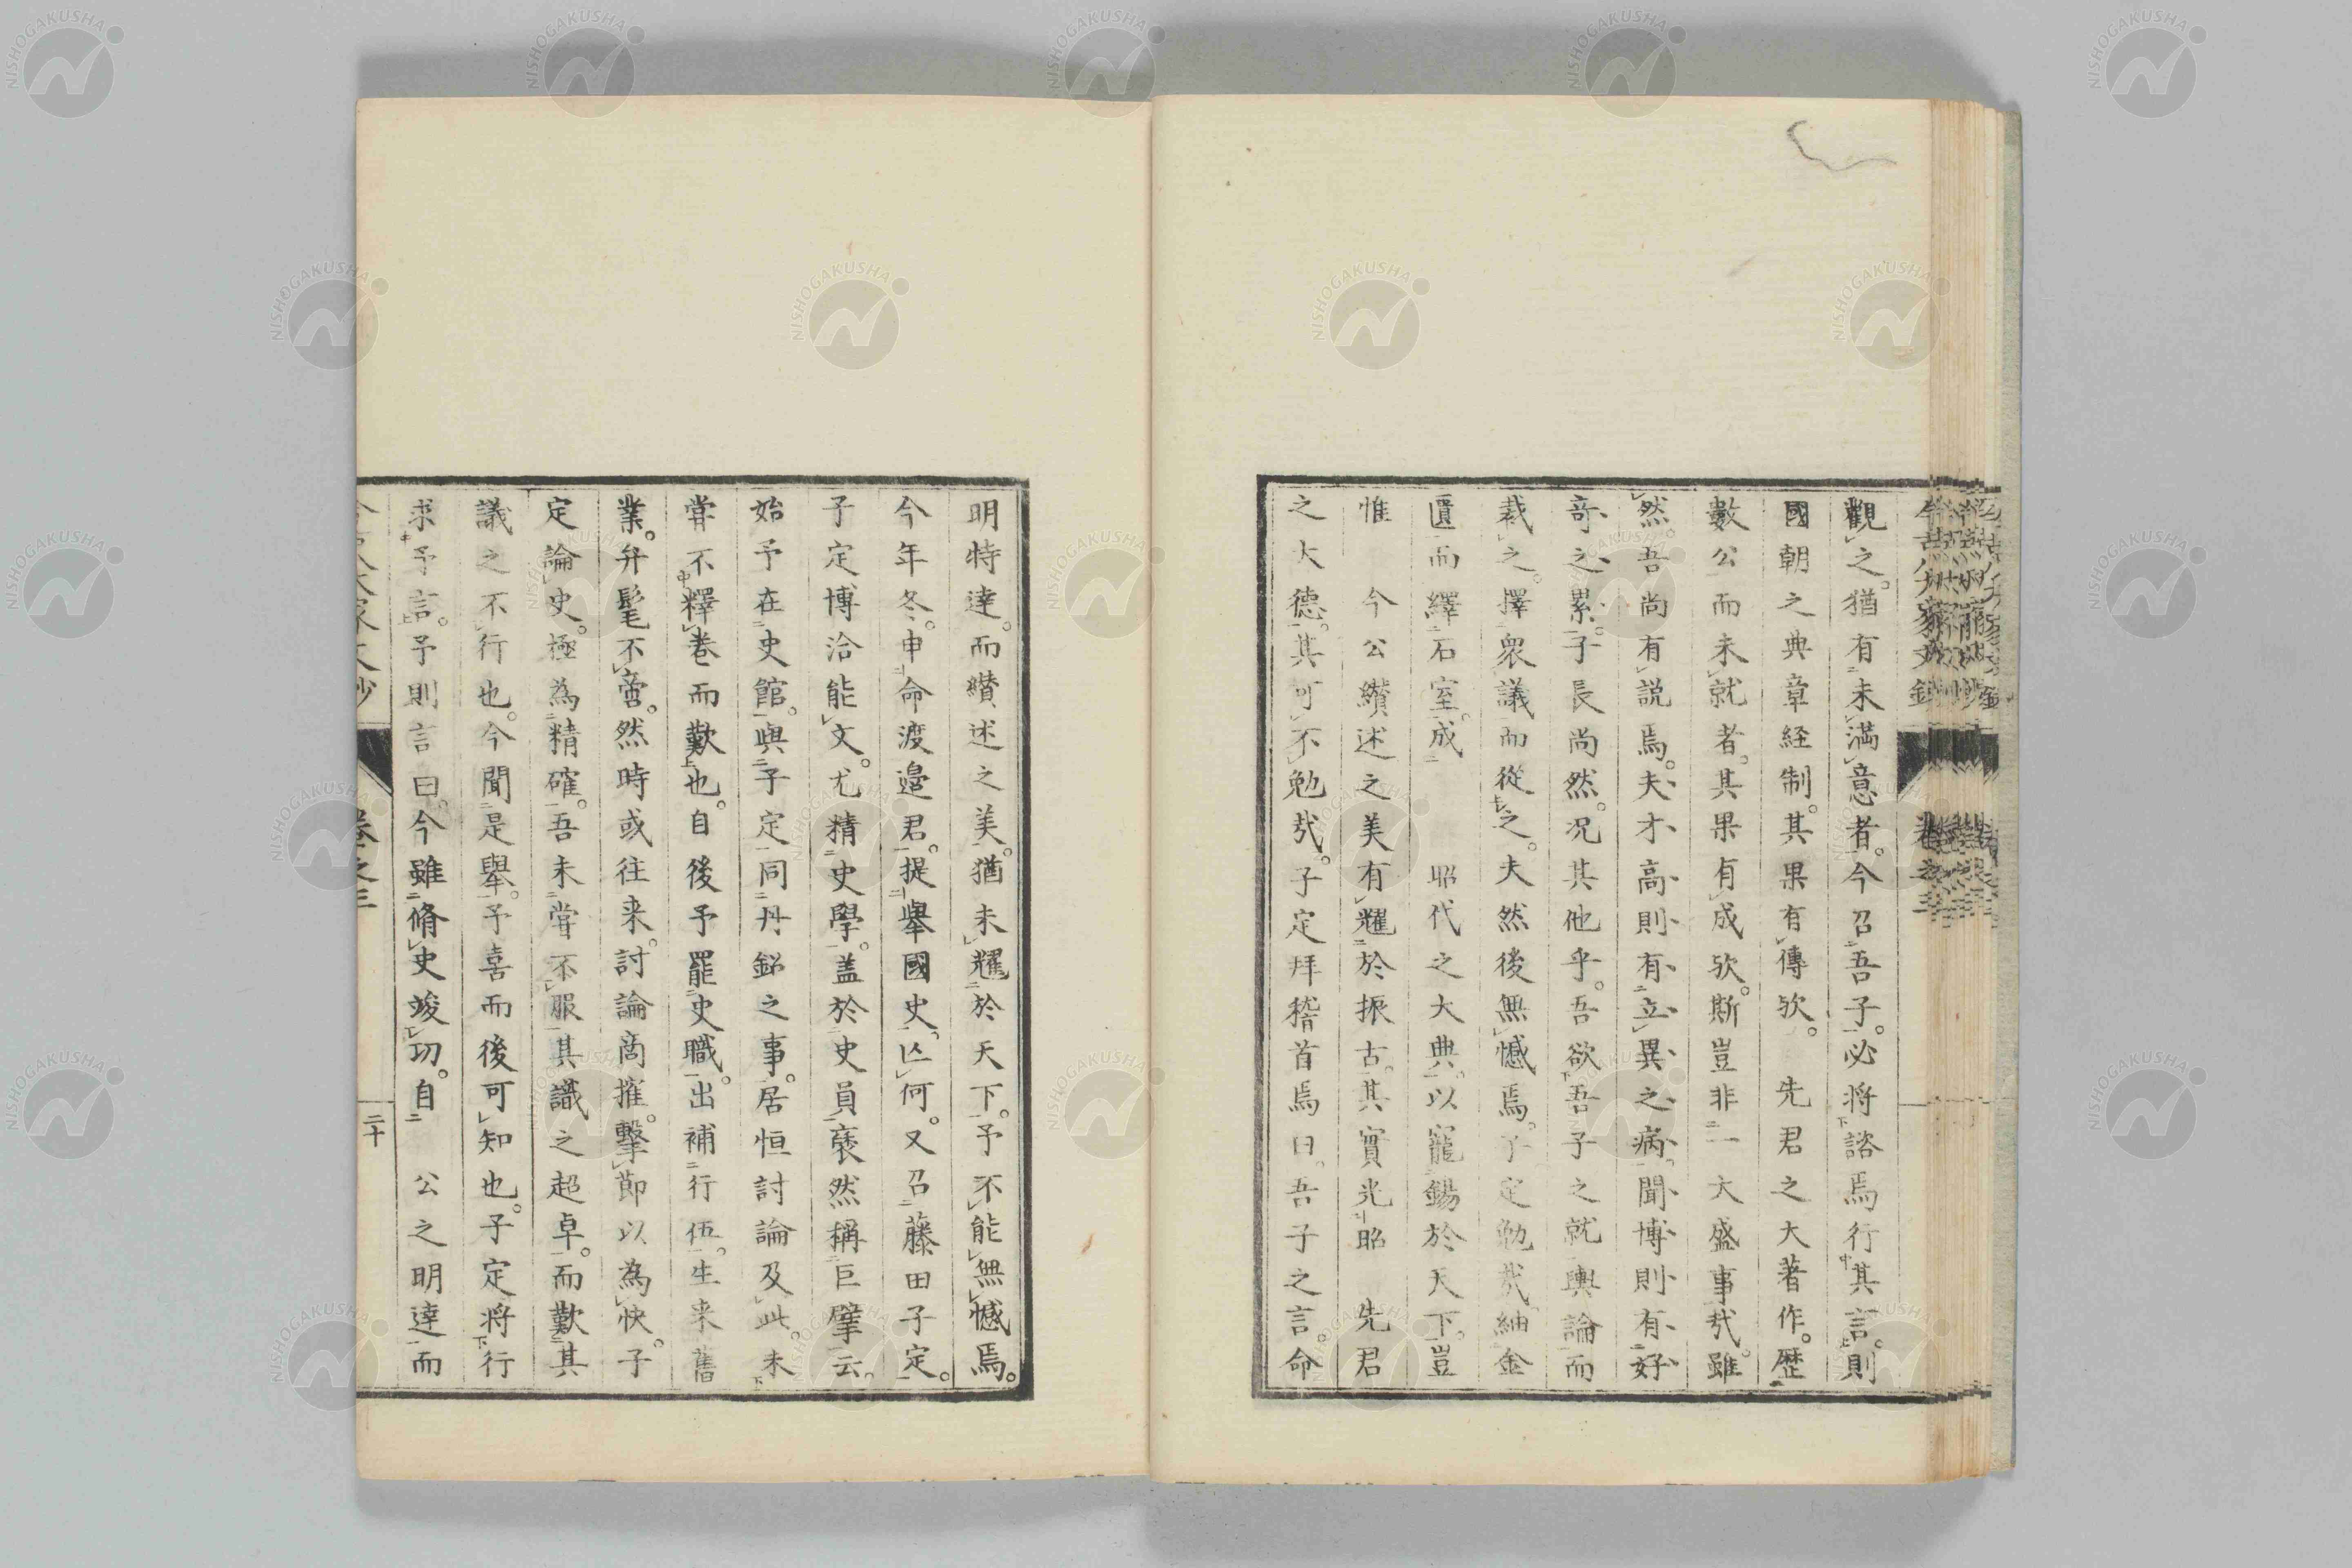 觀之。猶有未滿意者。今召吾子。必將諮焉行其言。則
國朝之典章経制。其果有傳欤。　先君之大著作。歴
數公而未就者。其果有成欤。斯豈非一大盛事㢤。雖
然。吾尚有説焉。夫才高則有立異之病。聞博則有好
竒之累。子長尚然。况其他乎。吾欲吾子之就輿論而
裁之。擇衆議而從之。夫然後無憾焉。子定勉㢤。紬金
匱而繹石室。成　　昭代之大典。以寵錫於天下。豈
惟　今公纉述之美有耀於振古。其實光昭　先君
之大德。其可不勉㢤。子定拜稽首焉曰。吾子之言。命
明特達。而纉述之美。猶未耀於天下。予不能無憾焉。
今年冬。申命渡邉君。提舉國史。亾何。又召藤田子定。
子定博洽能文。尤精史學。蓋於史員褎然稱巨擘云。
始予在史館。與子定同丹鉛之事。居恒討論及此。未
甞不釋卷而歎也。自後予罷史職。出補行伍。生来舊
業。弁髦不啻。然時或往来。討論商搉。擊節以為快。子
定論史。極為精確。吾未甞不服其識之超卓。而歎其
議之不行也。今聞是舉。予喜而後可知也。子定將行
求予言。予則言曰。今雖脩史竣功。自　公之明達而
卷之三
二十
NISHOGAKUSHA